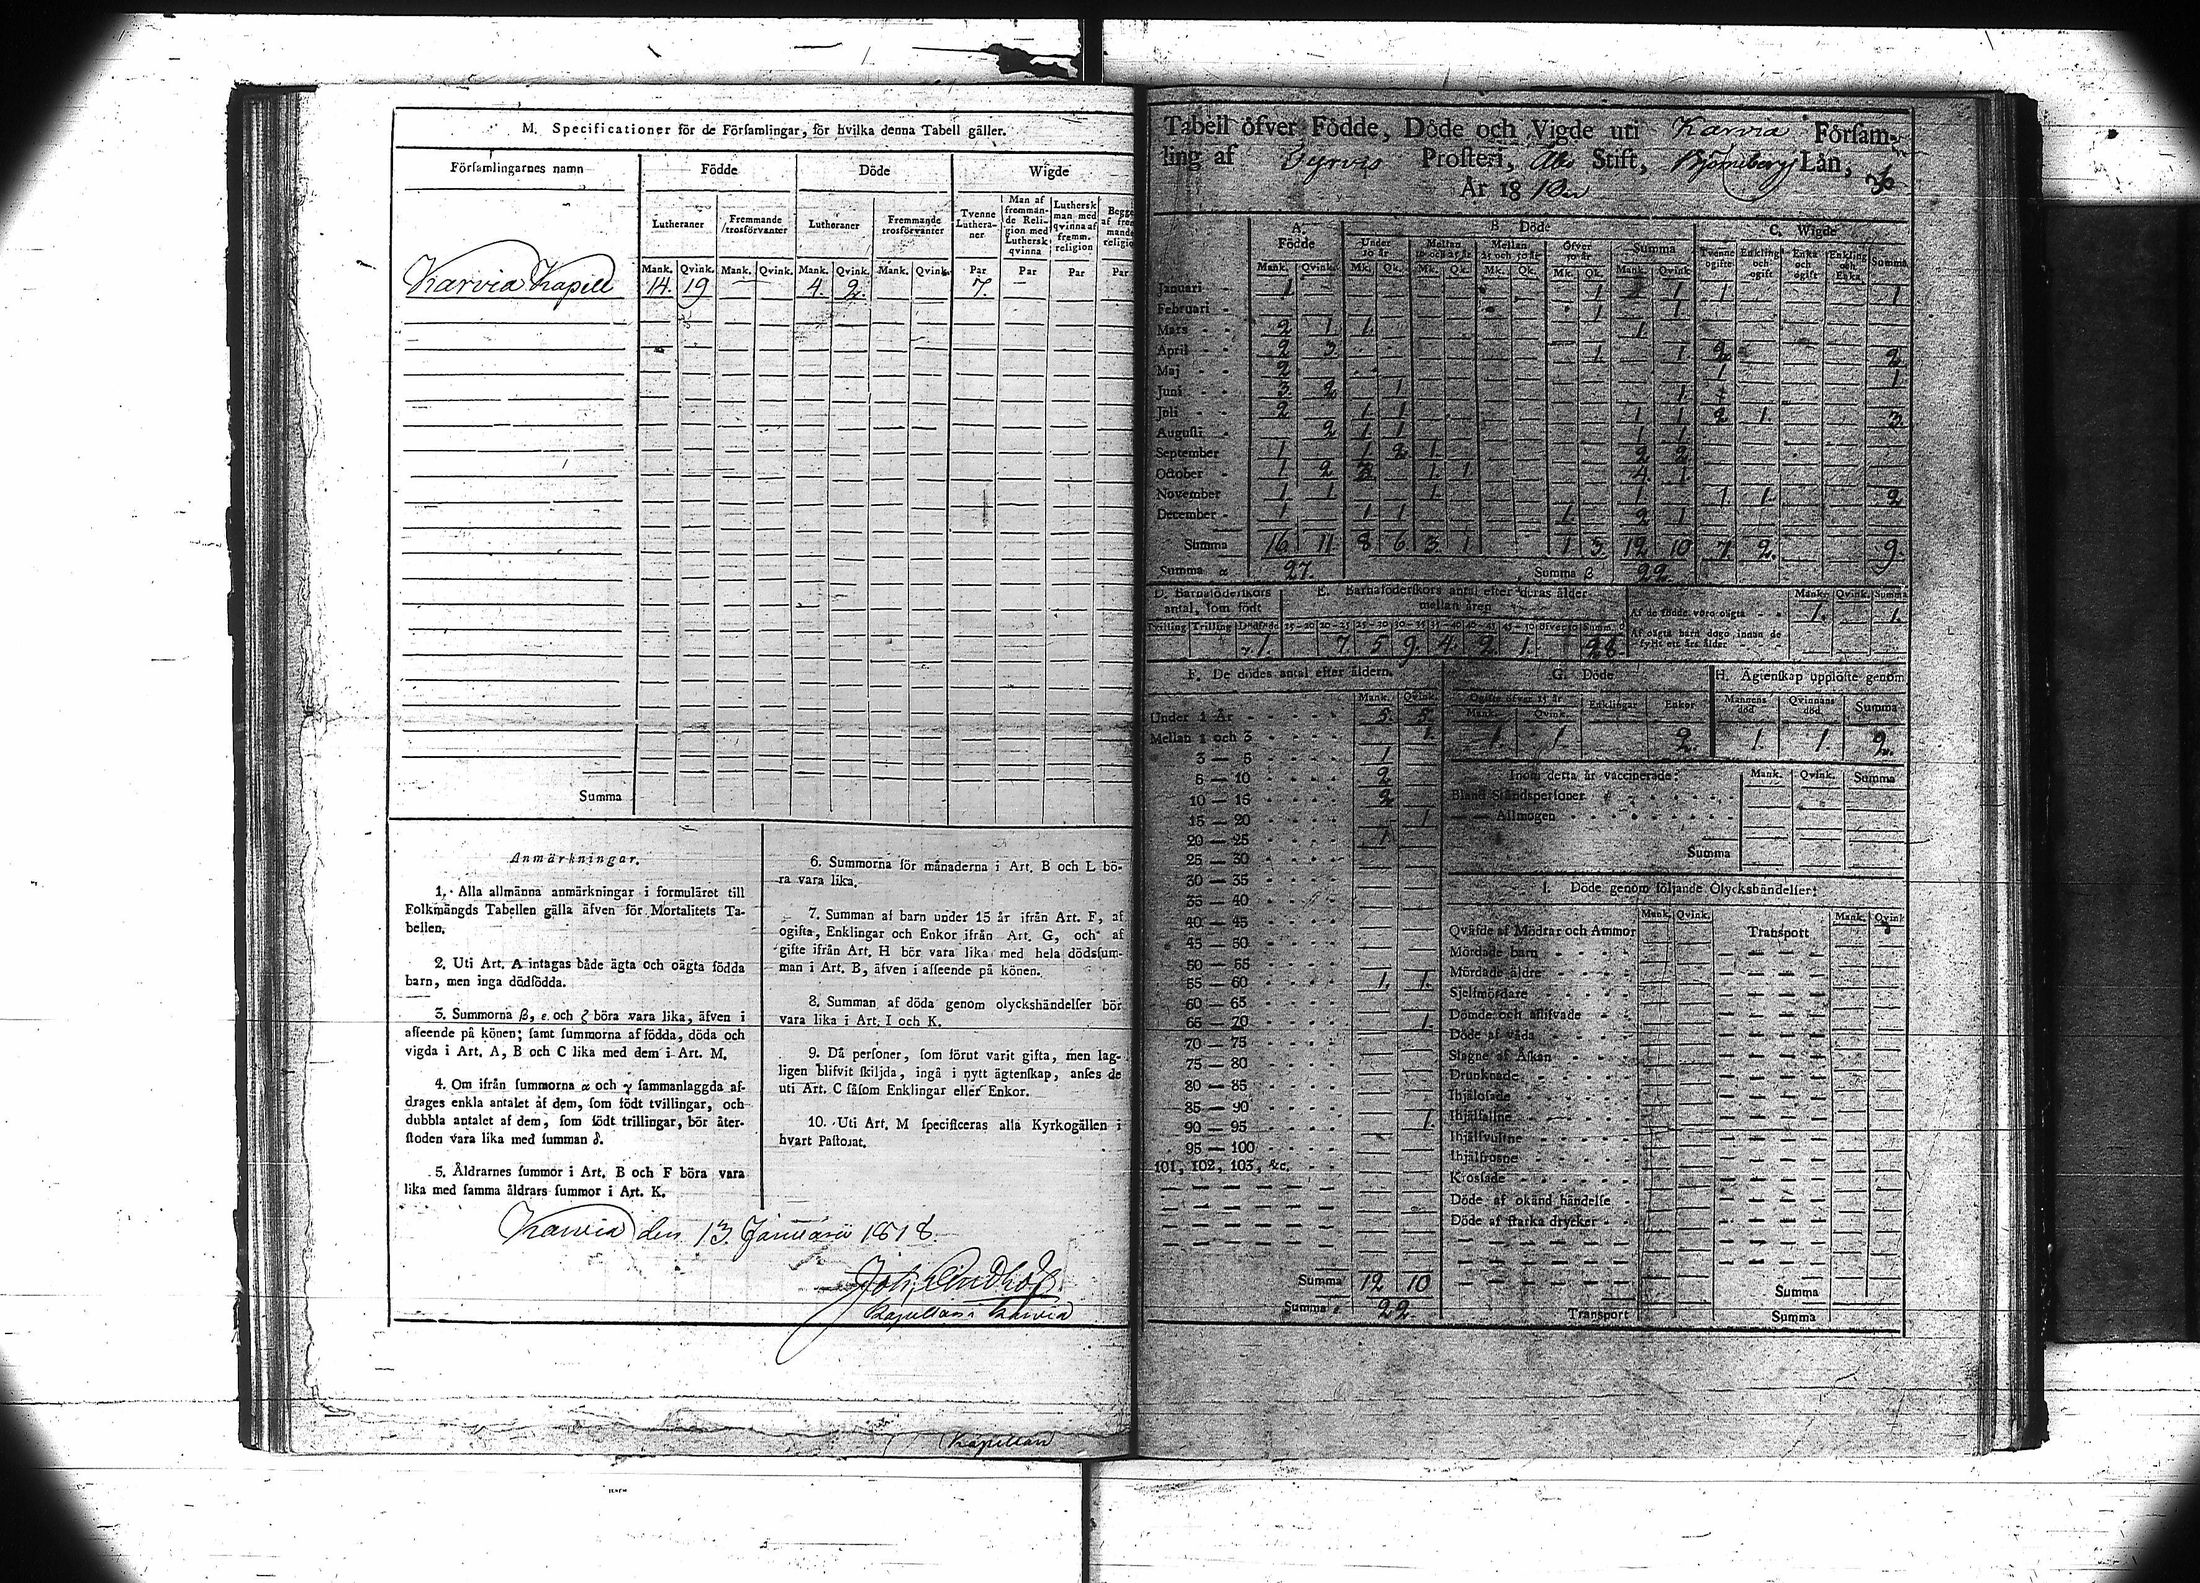 M. Specificationer för de Församlingar, för hvilka denna Tabell gäller.
Församlingarnes namn
Födde
Döde
Wigde
Lutheraner
Fremmande trosförvanter
Lutheraner
Fremmande trosförvanter
Tvenne Lutheraner
Man af fremmande Religion med Luthersk qvinna
Luthersk man med qvinna af fremm. religion
Mank. Qvink. Mank. Qvink. Mank. Qvink. Mank. Qvink. Par Par Par Par
Karvia Kapell 14. 19 — — 4. 2. 7. —
Summa
Anmärkningar.
1. Alla allmänna anmärkningar i formuläret till
Folkmängds Tabellen gälla äfven för Mortalitets Ta-
bellen.
2. Uti Art. A intagas både ägta och oägta födda
barn, men inga dödfödda.
3. Summorna β, ε och ζ böra vara lika, äfven i
afseende på könen; samt summorna af födda, döda och
vigda i Art. A, B och C lika med dem i Art. M.
4. Om ifrån summorna α och γ sammanlaggda af-
drages enkla antalet af dem, som födt tvillingar, och
dubbla antalet af dem, som födt trillingar, bör åter-
stoden vara lika med summan δ.
5. Åldrarnes summor i Art. B och F böra vara
lika med samma åldrars summor i Art. K.
6. Summorna för månaderna i Art. B och L bö-
ra vara lika.
7. Summan af barn under 15 år ifrån Art. F, af
ogifta, Enklingar och Enkor ifrån Art. G, och af
gifte ifrån Art. H bör vara lika med hela dödssum-
man i Art. B, äfven i afseende på könen.
8. Summan af döda genom olyckshändelser bör
vara lika i Art. I och K.
9. Då personer, som förut varit gifta, men lag-
ligen blifvit skiljda, ingå i nytt ägtenskap, anses de
uti Art. C såsom Enklingar eller Enkor.
10. Uti Art. M specificeras alla Kyrkogällen i
hvart Pastorat.
Karvia den 13 Januarii 1818
Kapellan i Karvia
Kapellan
Tabell öfver Födde, Döde och Vigde uti Karvia Försam-
ling af Tyrvis Prosteri, Åbo Stift, Björneborgs Län,
År 18
36
A. Födde
B. Döde
C. Wigde
Under 10 år
Mellan 10 och 25 år
Mellan 25 och 50 år
Öfver 50 år
Summa
Tvenne ogifte
Enkling och ogift
Enka och ogift
Enkling och Enka
Summa
Mank. Qvink. Mk. Qk. Mk. Qk. Mk. Qk. Mk. Qk. Mank. Qvink.
Januari 1 1 1 1 1
Februari 1 1
Mars 2 1 1 1
April 2 3 1 1 2 2
Maj 2 1 1
Juni 3 2 1 1
Juli 2 1 1 1 1 2 1 3
Augusti 2 1 1 1 1
September 1 1 2 1 2 2
October 1 2 3 1 1 4 1
November 1 1 1 1 1 1 2
December 1 1 1 1 2 1
Summa 16 11 8 6 3 1 1 3 12 10 7 2 9
Summa α 27. Summa β 22
D. Barnaföderskors antal, som födt
Tvilling Trilling Dödfödde
γ 1.
E. Barnaföderskors antal efter deras ålder mellan åren
15—20 20—25 25—30 30—35 35—40 40—45 45—50 öfver 50 Summ. δ
7. 5 9. 4. 2 1. 28.
Mank. Qvink. Summa
Af de födde voro oägta 1. 1.
Af oägta barn dogo innan de fyllt ett års ålder
F. De dödes antal efter åldern.
Mank. Qvink.
Under 1 År 5. 5
Mellan 1 och 3 1.
3 — 5 1
5 — 10 2
10 — 15 2
15 — 20 1
20 — 25 1
25 — 30
30 — 35
35 — 40
40 — 45
45 — 50
50 — 55
55 — 60 1. 1.
60 — 65
65 — 70 1.
70 — 75
75 — 80
80 — 85
85 — 90
90 — 95 1.
95 — 100
101, 102, 103, &c.
Summa 12 10
Summa ε 22.
G. Döde
Ogifte öfver 15 år
Enklingar
Enkor
Mank. Qvink.
1. 1. 2.
H. Ägtenskap upplöste genom
Mannens död
Qvinnans död
Summa
1. 1. 2.
Inom detta år vaccinerade:
Mank. Qvink. Summa
Bland Ståndspersoner
— — Allmogen
Summa
I. Döde genom följande Olyckshändelser:
Mank. Qvink. Mank. Qvink
Qväfde af Mödrar och Ammor
Transport
Mördade barn
Mördade äldre
Sjelfmördare
Dömde och aflifvade
Döde af våda
Slagne af Åskan
Drunknade
Ihjälosade
Ihjälfallne
Ihjälsvultne
Ihjälfrosne
Krossade
Döde af okänd händelse
Döde af starka drycker
Summa
Transport
Summa